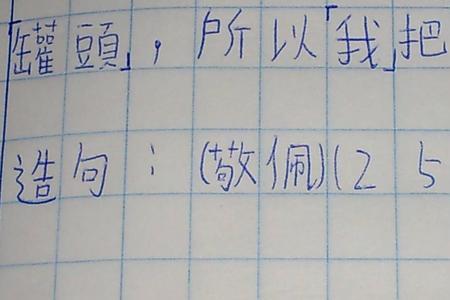 「罐頭」，所以「我」把
造句：(敬佩)(25